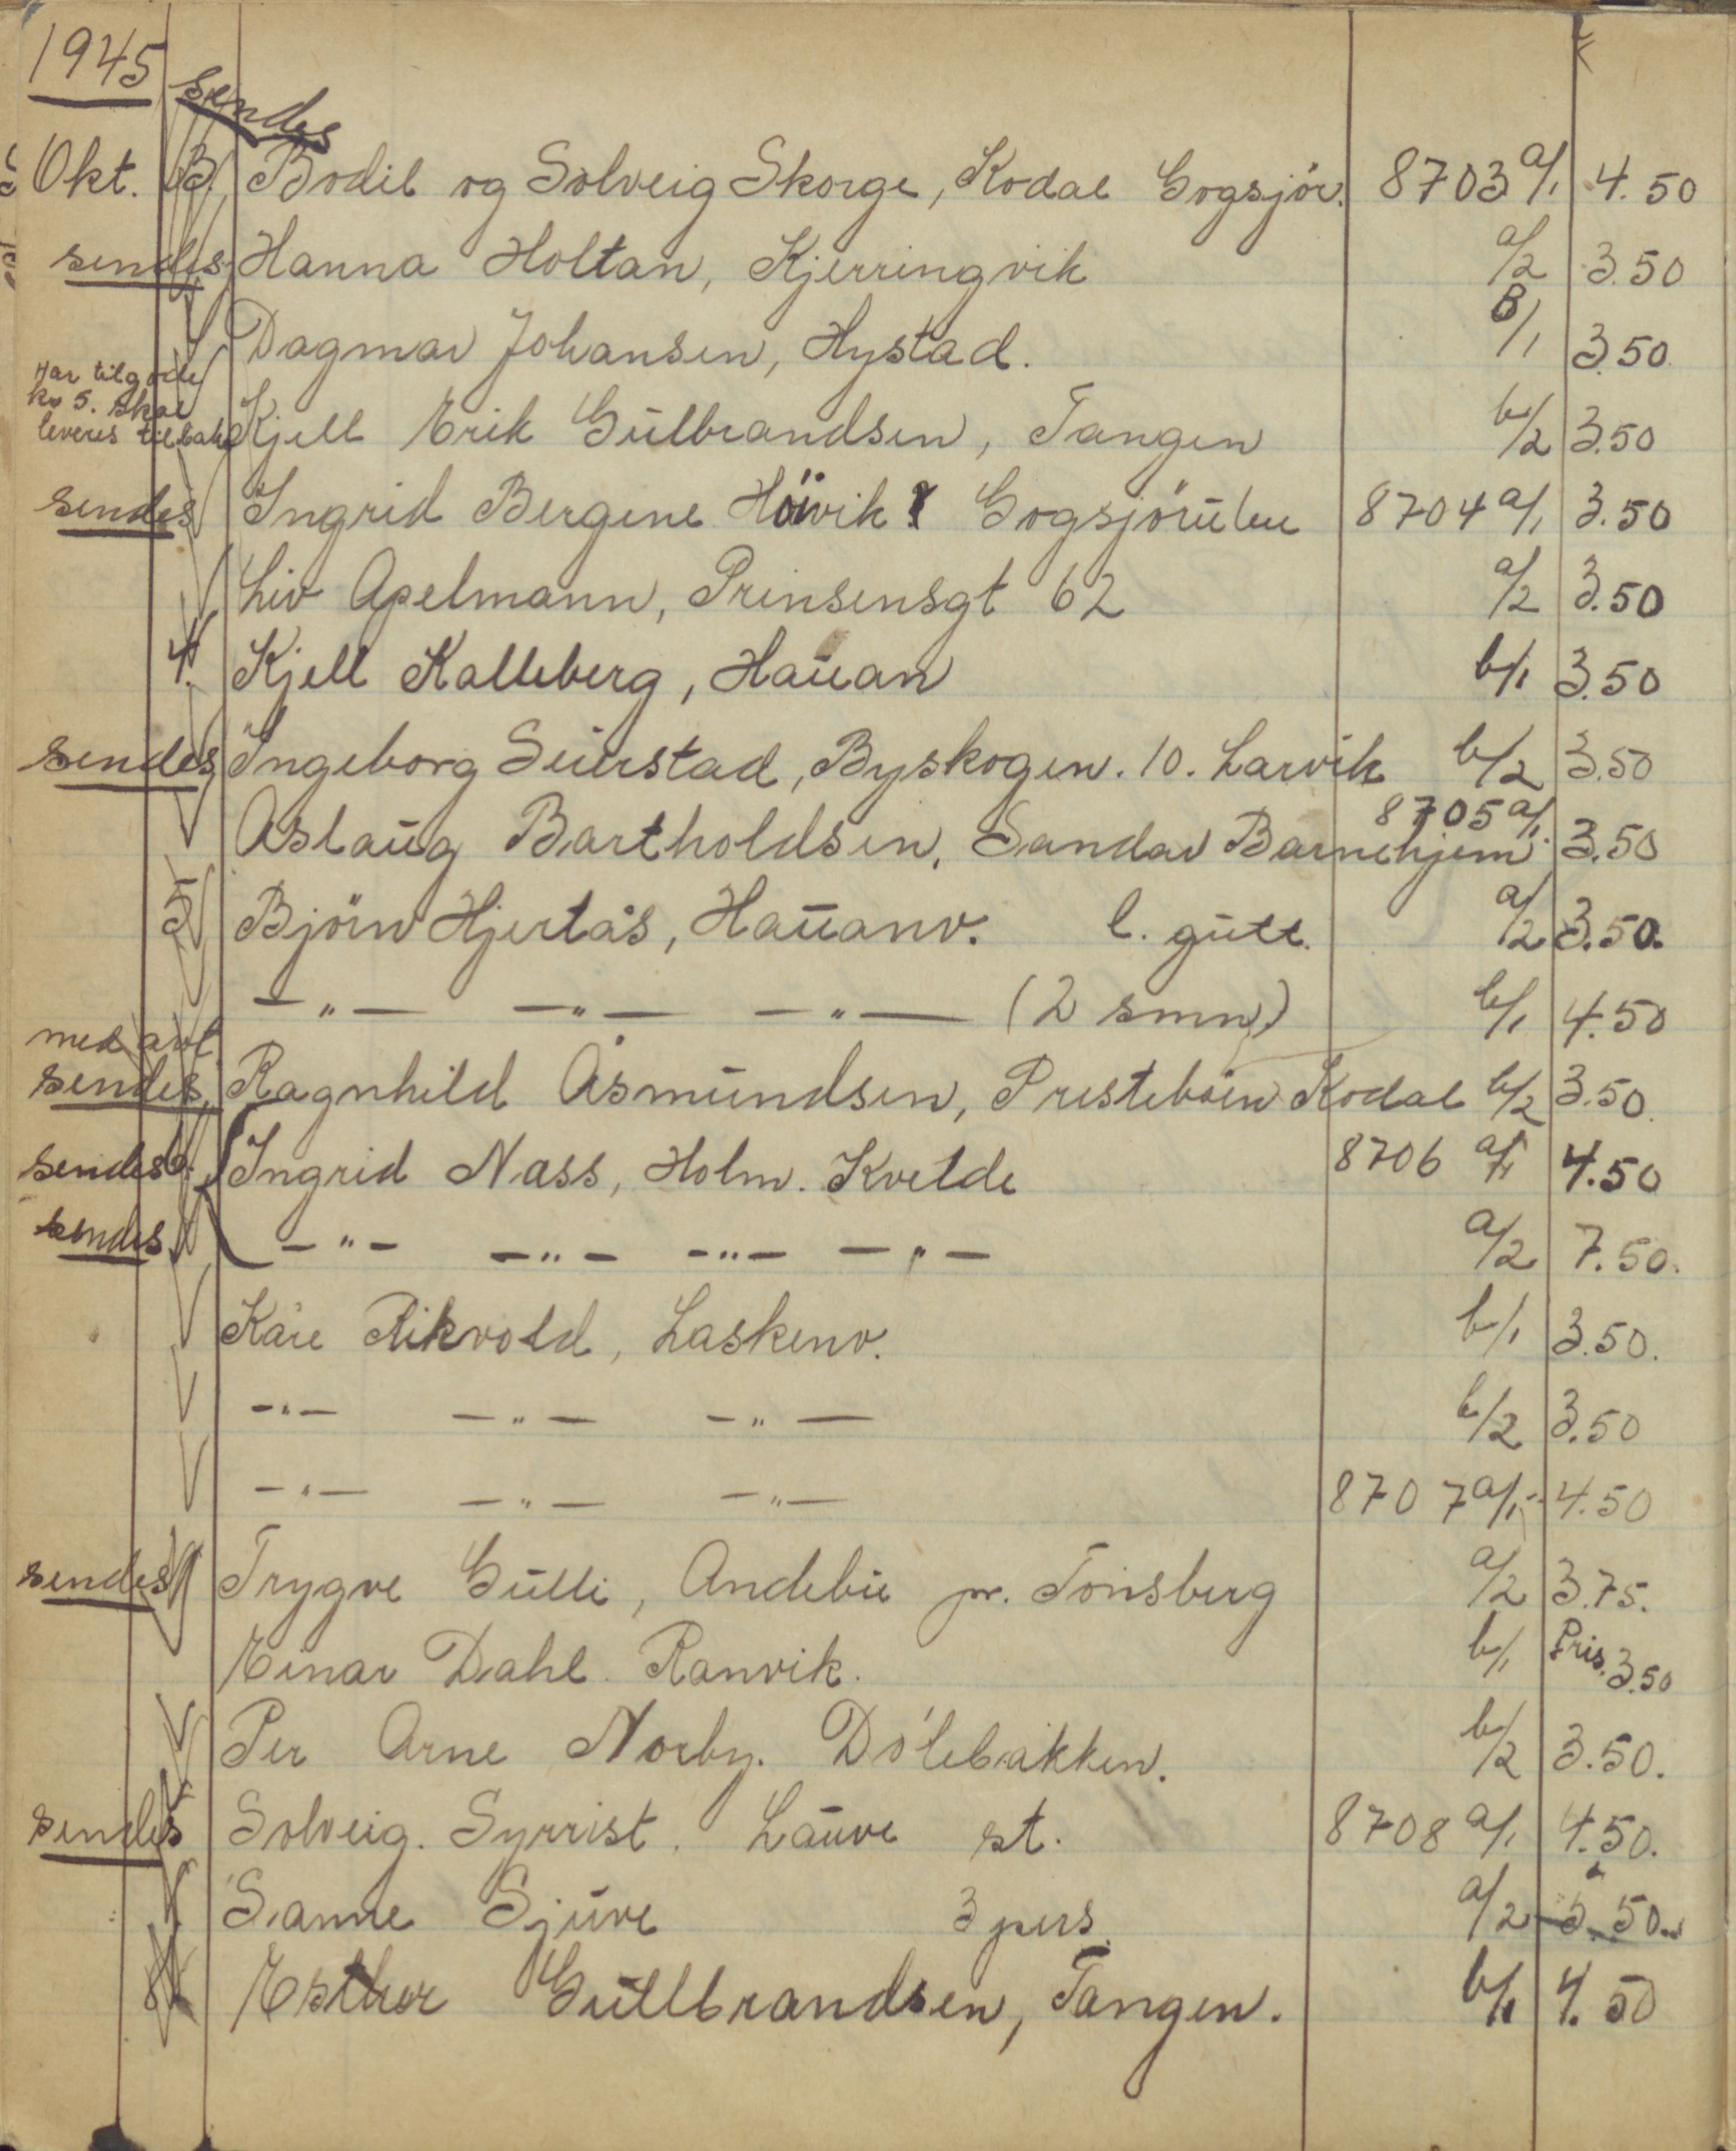 1945
sendes
Okt. 3. Bodil og Solveig Skorge, Kodal Gogsjör. 8703 a/1 4.50
sendes Hanna Holtan, Kjerringvik a/2 3.50
Dagmar Johansen, Hystad. B/1 3.50
Har tilgode
kr 5. Skal
leveres tilbake Kjell Erik Gulbrandsen, Tangen b/2 3.50
sendes Ingrid Bergene Höivik Gogsjöruten 8704 a/1 3.50
Liv Apelmann, Prinsensgt 62 a/2 3.50
4. Kjell Kalleberg, Hauan b/1 3.50
sendes Ingeborg Seierstad, Byskogen. 10. Larvik b/2 3.50
Aslaug Bartholdsen, Sandar Barnehjem 8705 a/1. 3.50
5 Björn Hjertås, Hauanv. l. gutt. a/2 3.50.
—„— —„— —„— (2 smn) b/1 4.50
med avt
sendes, Ragnhild Åsmundsen, Presteböen Kodal b/2 3.50.
sendes 6. Ingrid Nass, Holm. Kvelde 8706 a/1 4.50
sendes —„— —„— —„— —„— a/2 7.50.
Kåre Rikvold, Laskenv. b/1 3.50.
—„— —„— —„— b/2 3.50
—„— —„— —„— 8707 a/1 4.50
sendes Trygve Gulli, Andebu pr. Tönsberg a/2 3.75.
Einar Dahl. Ranvik. b/1 Pris. 3.50
Per Arne Norby. Dölebakken. b/2 3.50.
sendes Solveig. Syrrist. Lauve st. 8708 a/1 4.50.
Sanne Sjuve 3 pers. a/2 5.50.
8 Esther Gullbrandsen, Tangen. b/1 4.50